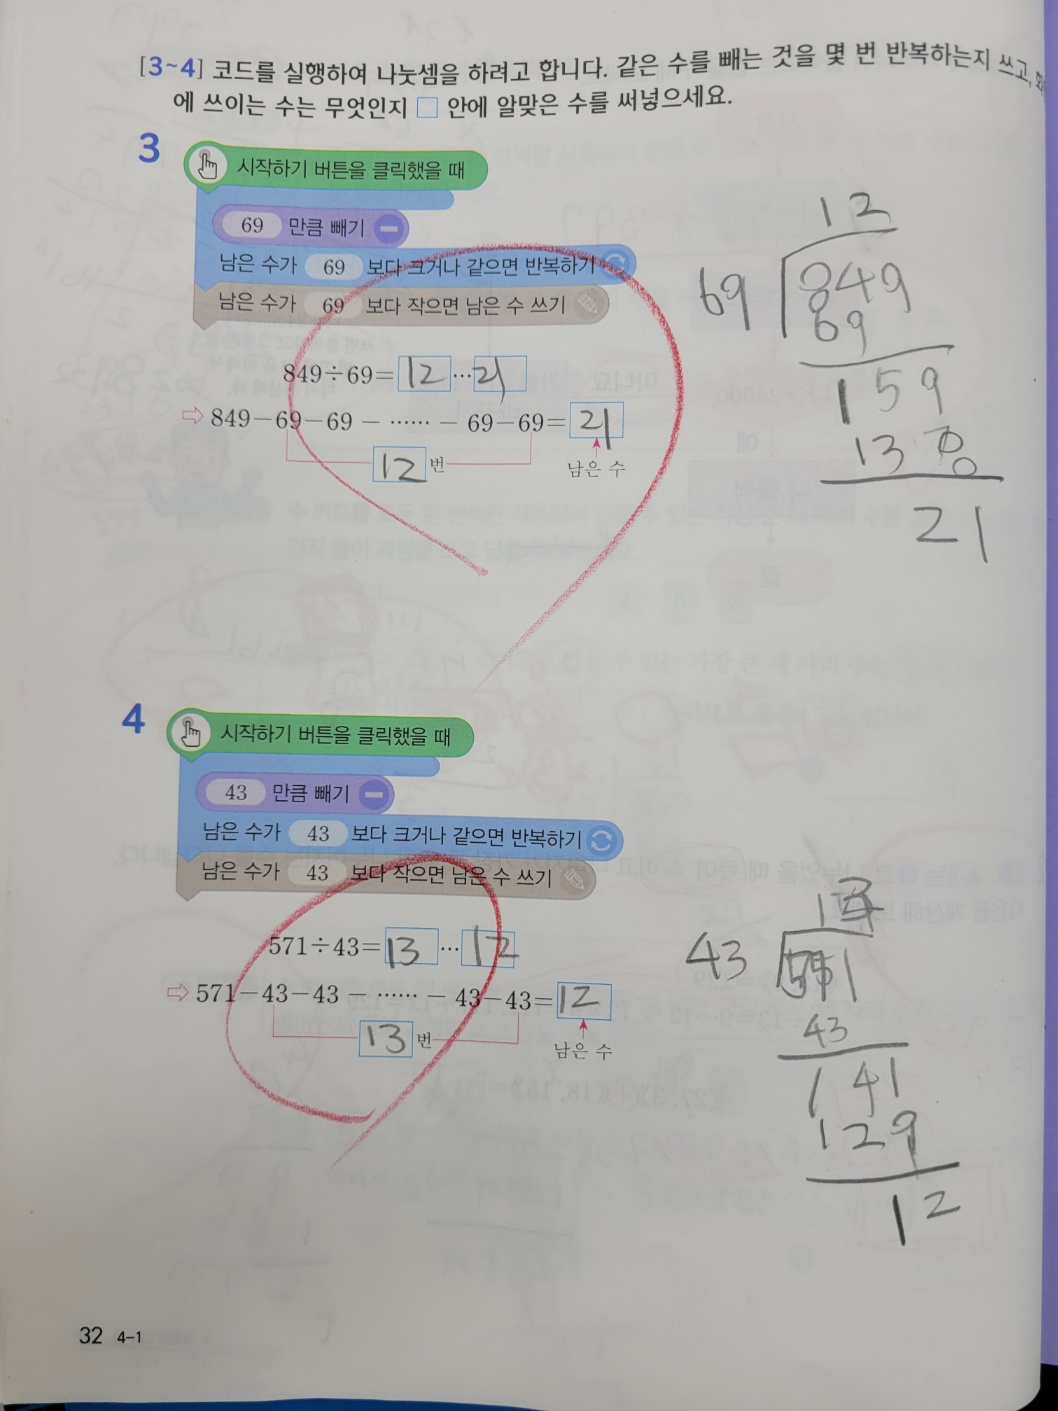 [3~4] 코드를 실행하여 나눗셈을 하려고 합니다. 같은 수를 빼는 것을 몇 번 반복하는지 쓰고,
에 쓰이는 수는 무엇인지 □ 안에 알맞은 수를 써넣으세요.
3
시작하기 버튼을 클릭했을 때
69 만큼 빼기
남은 수가 69 보다 크거나 같으면 반복하기
남은 수가 69 보다 작으면 남은 수 쓰기
849÷69=12···21
⇨ 849-69-69-······-69-69=21
12번
남은 수
12
69
849
69
159
138
21
4
시작하기 버튼을 클릭했을 때
43 만큼 빼기
남은 수가 43 보다 크거나 같으면 반복하기
남은 수가 43 보다 작으면 남은 수 쓰기
571÷43=13···12
⇨ 571-43-43-······-43-43=12
13번
남은 수
43
571
43
141
129
12
32 4-1